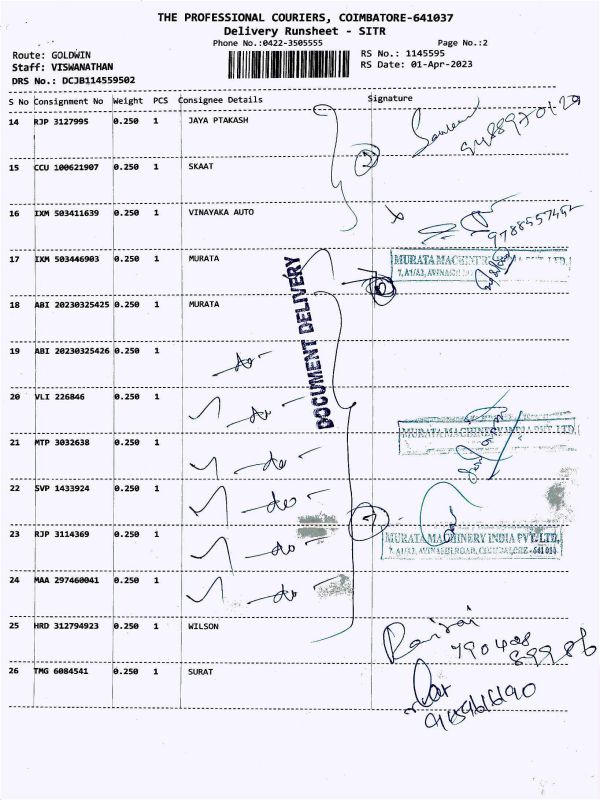 THE PROFESSIONAL COURIERS, COIMBATORE-641037
Delivery Runsheet - SITR
Phone No.:0422-3505555 Page No.:2
Route: GOLDWIN RS No.: 1145595
Staff: VISWANATHAN RS Date: 01-Apr-2023
DRS No.: DCJB114559502
S No Consignment No Weight PCS Consignee Details Signature
14 RJP 3127995 0.250 1 JAYA PTAKASH
15 CCU 100621907 0.250 1 SKAAT
16 IXM 503411639 0.250 1 VINAYAKA AUTO
9788557452
17 IXM 503446903 0.250 1 MURATA
MURATA MACHINERY
7, A1/A2, AVINASHI
DOCUMENT DELIVERY
18 ABI 20230325425 0.250 1 MURATA
19 ABI 20230325426 0.250 1
-do-
20 VLI 226846 0.250 1
-do-
MURATA MACHINERY INDIA PVT. LTD.
21 MTP 3032638 0.250 1
-do-
22 SVP 1433924 0.250 1
-do-
23 RJP 3114369 0.250 1
-do-
MURATA MACHINERY INDIA PVT. LTD.
7, A1/A2, AVINASHI ROAD, COIMBATORE - 641 014
24 MAA 297460041 0.250 1
-do-
25 HRD 312794923 0.250 1 WILSON
26 TMG 6084541 0.250 1 SURAT